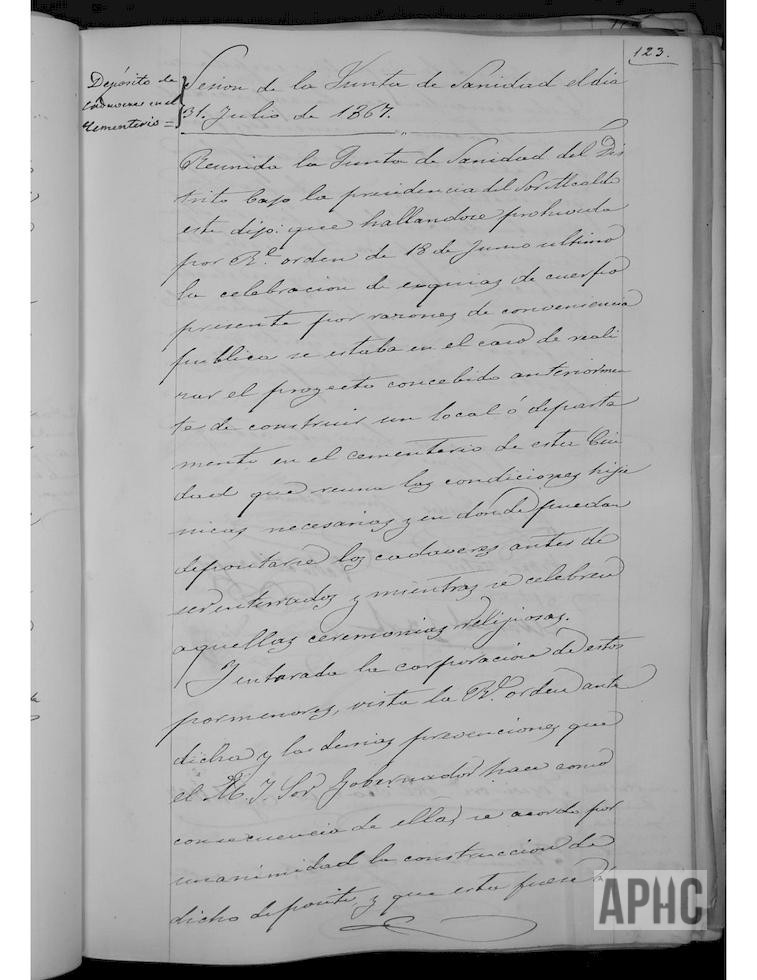 123.
Depósito de
cadaveres en el
Cementerio =
Sesion de la Junta de Sanidad el dia
31. Julio de 1867.
Reunida la Junta de Sanidad del Dis
trito bajo la presidencia del Sor Alcalde
este dijo: que hallandose prohivida
por Rl. orden de 18 de Junio ultimo
la celebracion de exquias de cuerpo
presente por razones de conveniencia
publica se estaba en el caso de reali
zar el proyecto concebido anteriormen
te de construir un local ó departa
mento en el cementerio de esta Ciu
dad que reuna las condiciones hijie
nicas necesarias y en donde puedan
depositarse los cadaveres antes de
ser enterrados y mientras se celebren
aquellas ceremonias religiosas.
Y enterada la corporacion de estos
pormenores, vista la Rl. orden ante
dicha y las demas prevenciones que
el M. I. Sor. Gobernador hace como
consecuencia de ella, se acordo por
unanimidad la construccion de
dicho deposito y que esta fuese
APHC